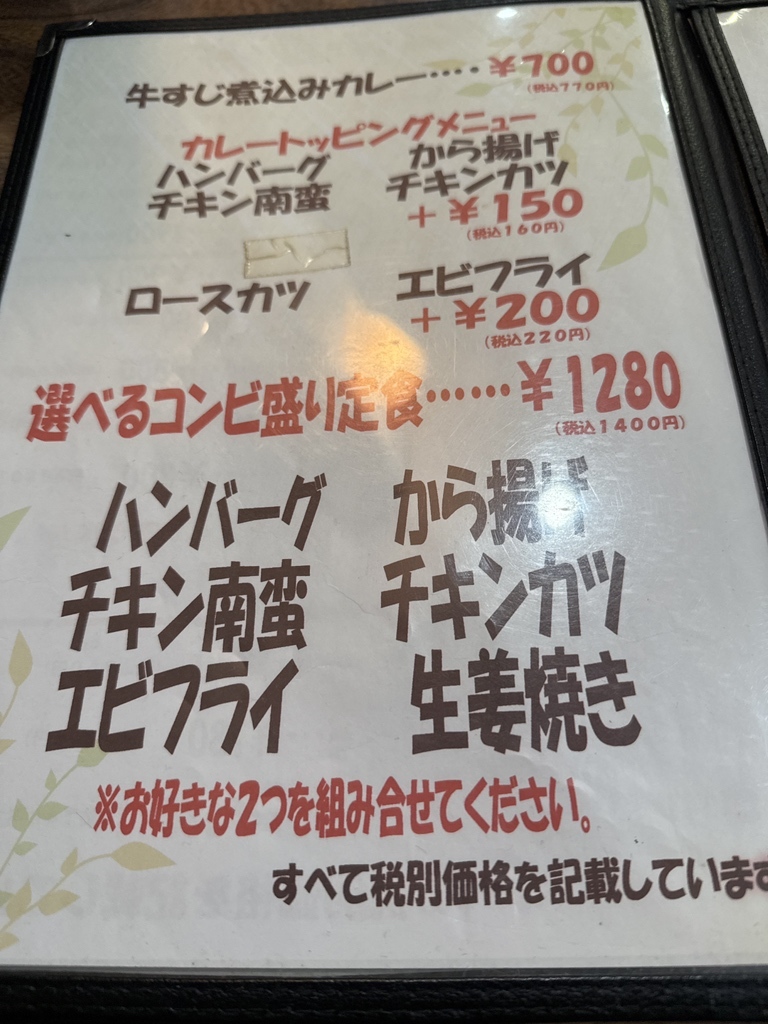 牛すじ煮込みカレー‥‥￥700
(税込770円)
カレートッピングメニュー
ハンバーグ から揚げ
チキン南蛮 チキンカツ
＋￥150
(税込160円)
ロースカツ エビフライ
＋￥200
(税込220円)
選べるコンビ盛り定食……￥1280
(税込1400円)
ハンバーグ から揚げ
チキン南蛮 チキンカツ
エビフライ 生姜焼き
※お好きな2つを組み合せてください。
すべて税別価格を記載しています